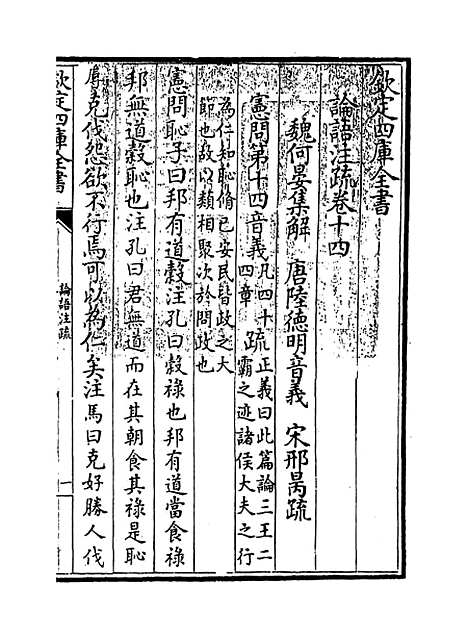 欽定四庫全書
論語注疏卷十四
魏何晏集解　唐陸德明音義　宋邢昺疏
憲問第十四音義凡四十四章疏正義曰此篇論三王二霸之迹諸侯大夫之行
為仁知恥脩己安民皆政之大節也故以類相聚次於問政也
憲問恥子曰邦有道穀注孔曰穀祿也邦有道當食祿
邦無道穀恥也注孔曰君無道而在其朝食其祿是恥
辱克伐怨欲不行焉可以為仁矣注馬曰克好勝人伐
欽定四庫全書
論語注疏
一